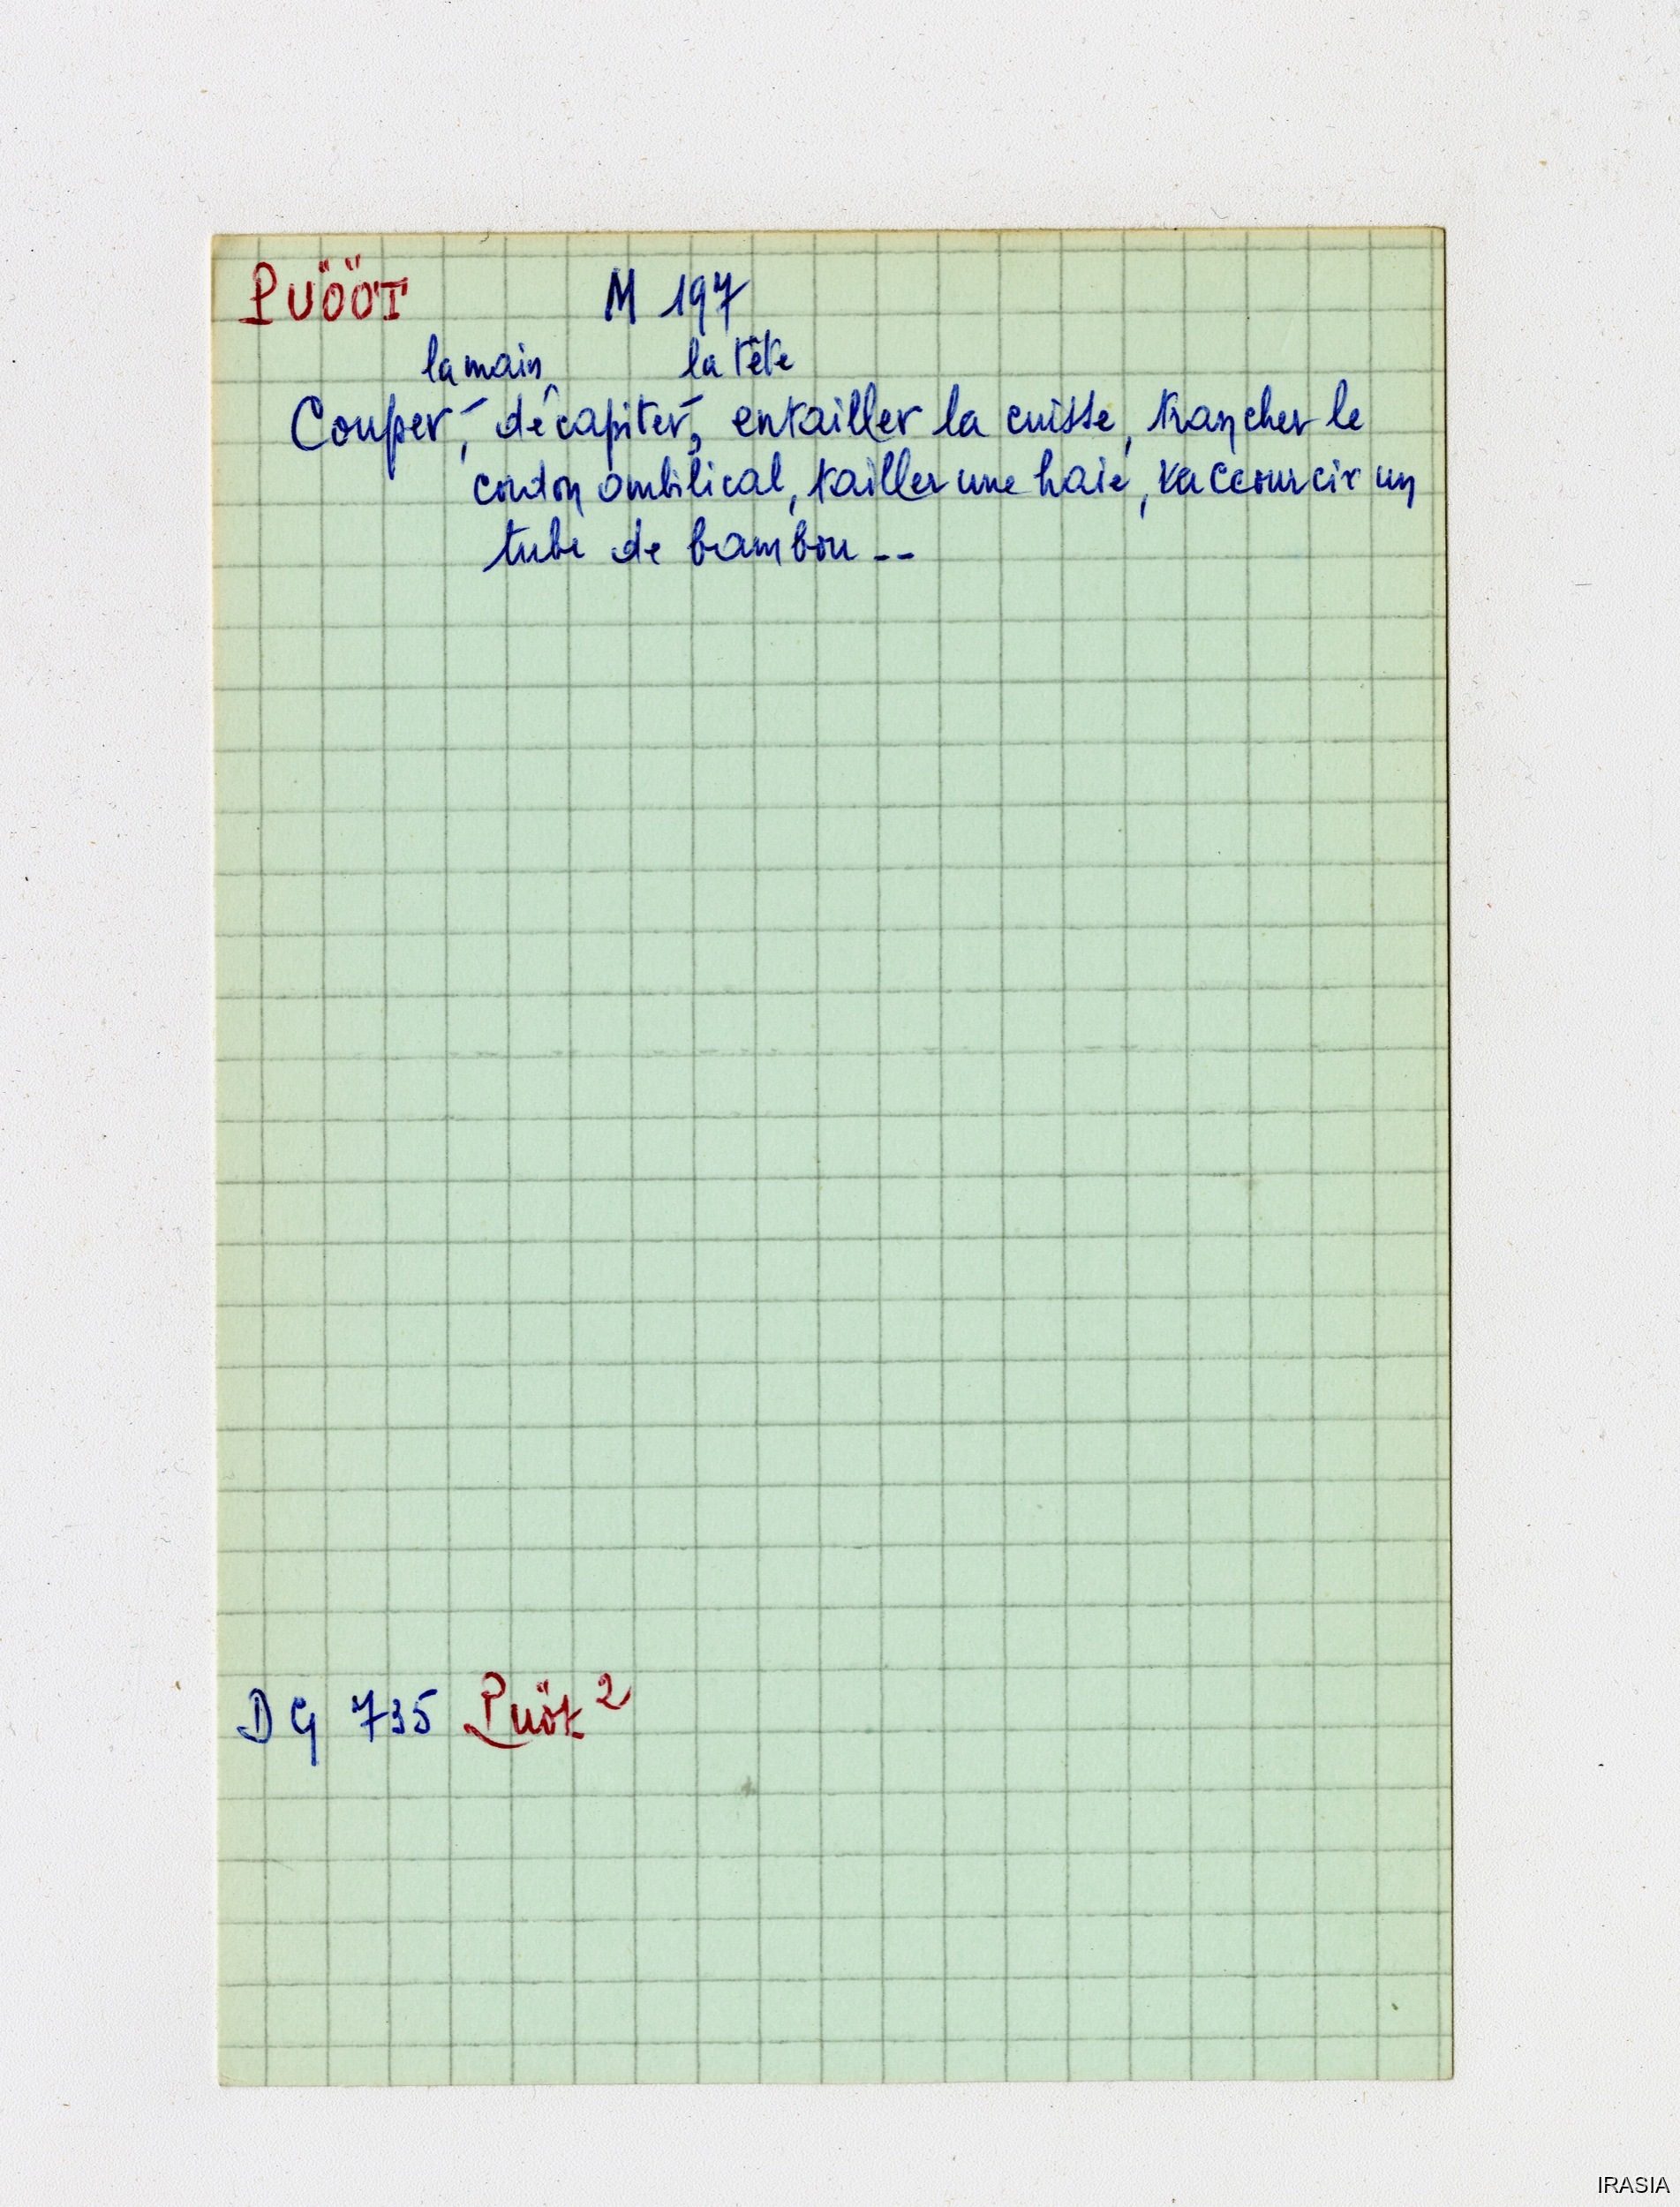 PUÖÖT M 197
la main la tête
Couper, décapiter, entailler la cuisse, trancher le
cordon ombilical, tailler une haie, raccourcir un
tube de bambou --
DG 735 Puöt 2
IRASIA